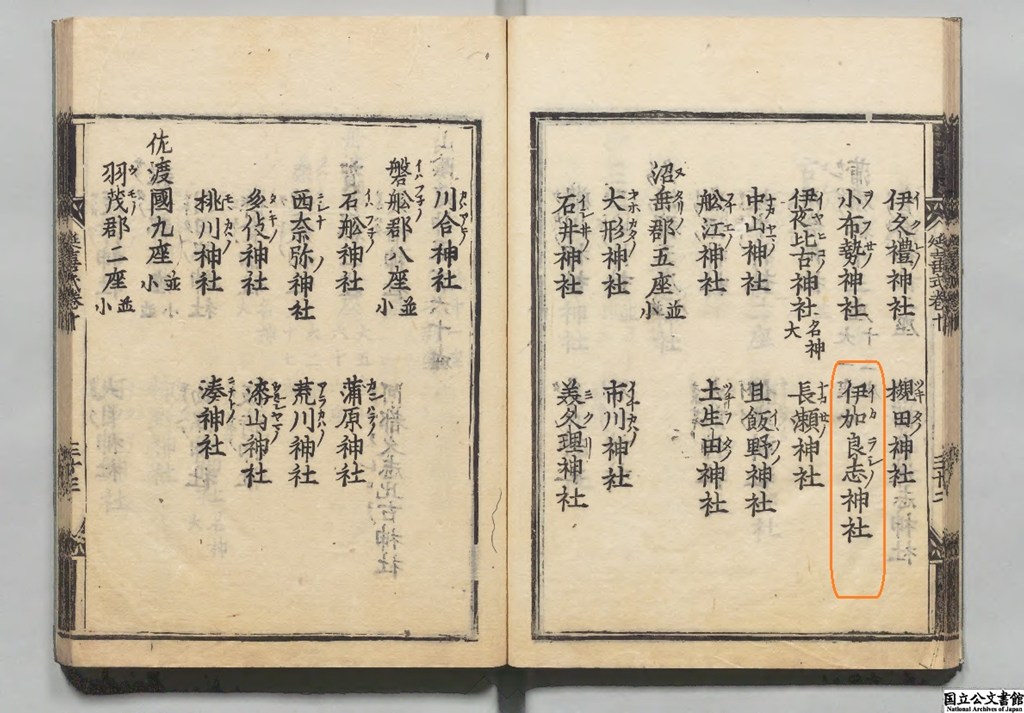 伊久禮神社
槻田神社
小布勢神社
伊加良志神社
伊夜比古神社 名神大
長瀬神社
中山神社
旦飯野神社
舩江神社
土生田神社
沼垂郡五座並小
大形神社
市川神社
石井神社
美久理神社
延喜式卷十
川合神社
磐舩郡八座並小
石舩神社
蒲原神社
西奈弥神社
荒川神社
多伎神社
漆山神社
桃川神社
湊神社
佐渡國九座並小
羽茂郡二座並小
延喜式卷十
国立公文書館
National Archives of Japan